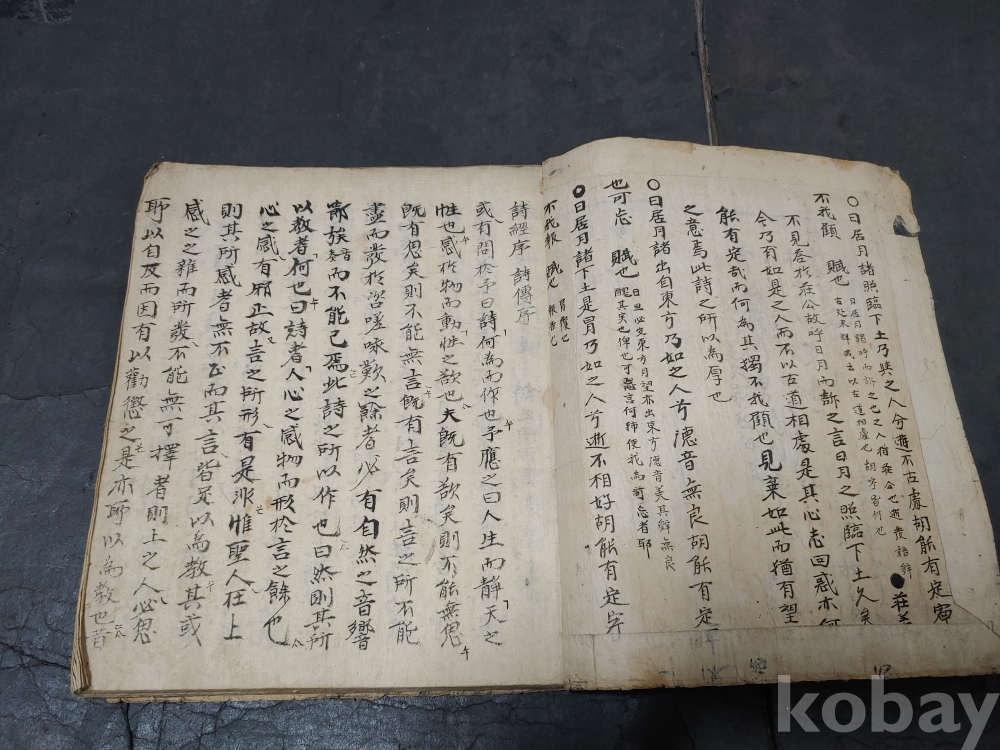 ○日居月諸照臨下土乃如之人兮逝不古處胡能有定寧
不我顧 賦也 日居月諸呼而訴之也之人指莊公也逝發語辭
古處未詳或云以古道相處也胡寧皆何也 ●莊姜
不見答於莊公故呼日月而訴之言日月之照臨下土久矣
今乃有如是之人而不以古道相處是其心志回惑亦何
能有定哉而何為其獨不我顧也見棄如此而猶有望
之意焉此詩之所以為厚也
○日居月諸出自東方乃如之人兮德音無良胡能有定
也可忘 賦也 日旦必出東方月望亦出東方德音美其辭無良
醜其實也俾也可忘言何獨使我為可忘者耶
○日居月諸下土是冒乃如之人兮逝不相好胡能有定寧
不我報 賦也 冒覆也
報答也
詩經序 詩傳序
或有問於予曰詩何為而作也予應之曰人生而靜天之
性也感於物而動性之欲也夫既有欲矣則不能無思
既有思矣則不能無言既有言矣則言之所不能
盡而發於咨嗟咏歎之餘者必有自然之音響
節族音奏而不能已焉此詩之所以作也曰然則其所
以敎者何也曰詩者人心之感物而形於言之餘也
心之感有邪正故言之所形有是非惟聖人在上
則其所感者無不正而其言皆足以為教其或
感之之雜而所發不能無可擇者則上之人必思
所以自反而因有以勸懲之是亦所以為教也昔
kobay